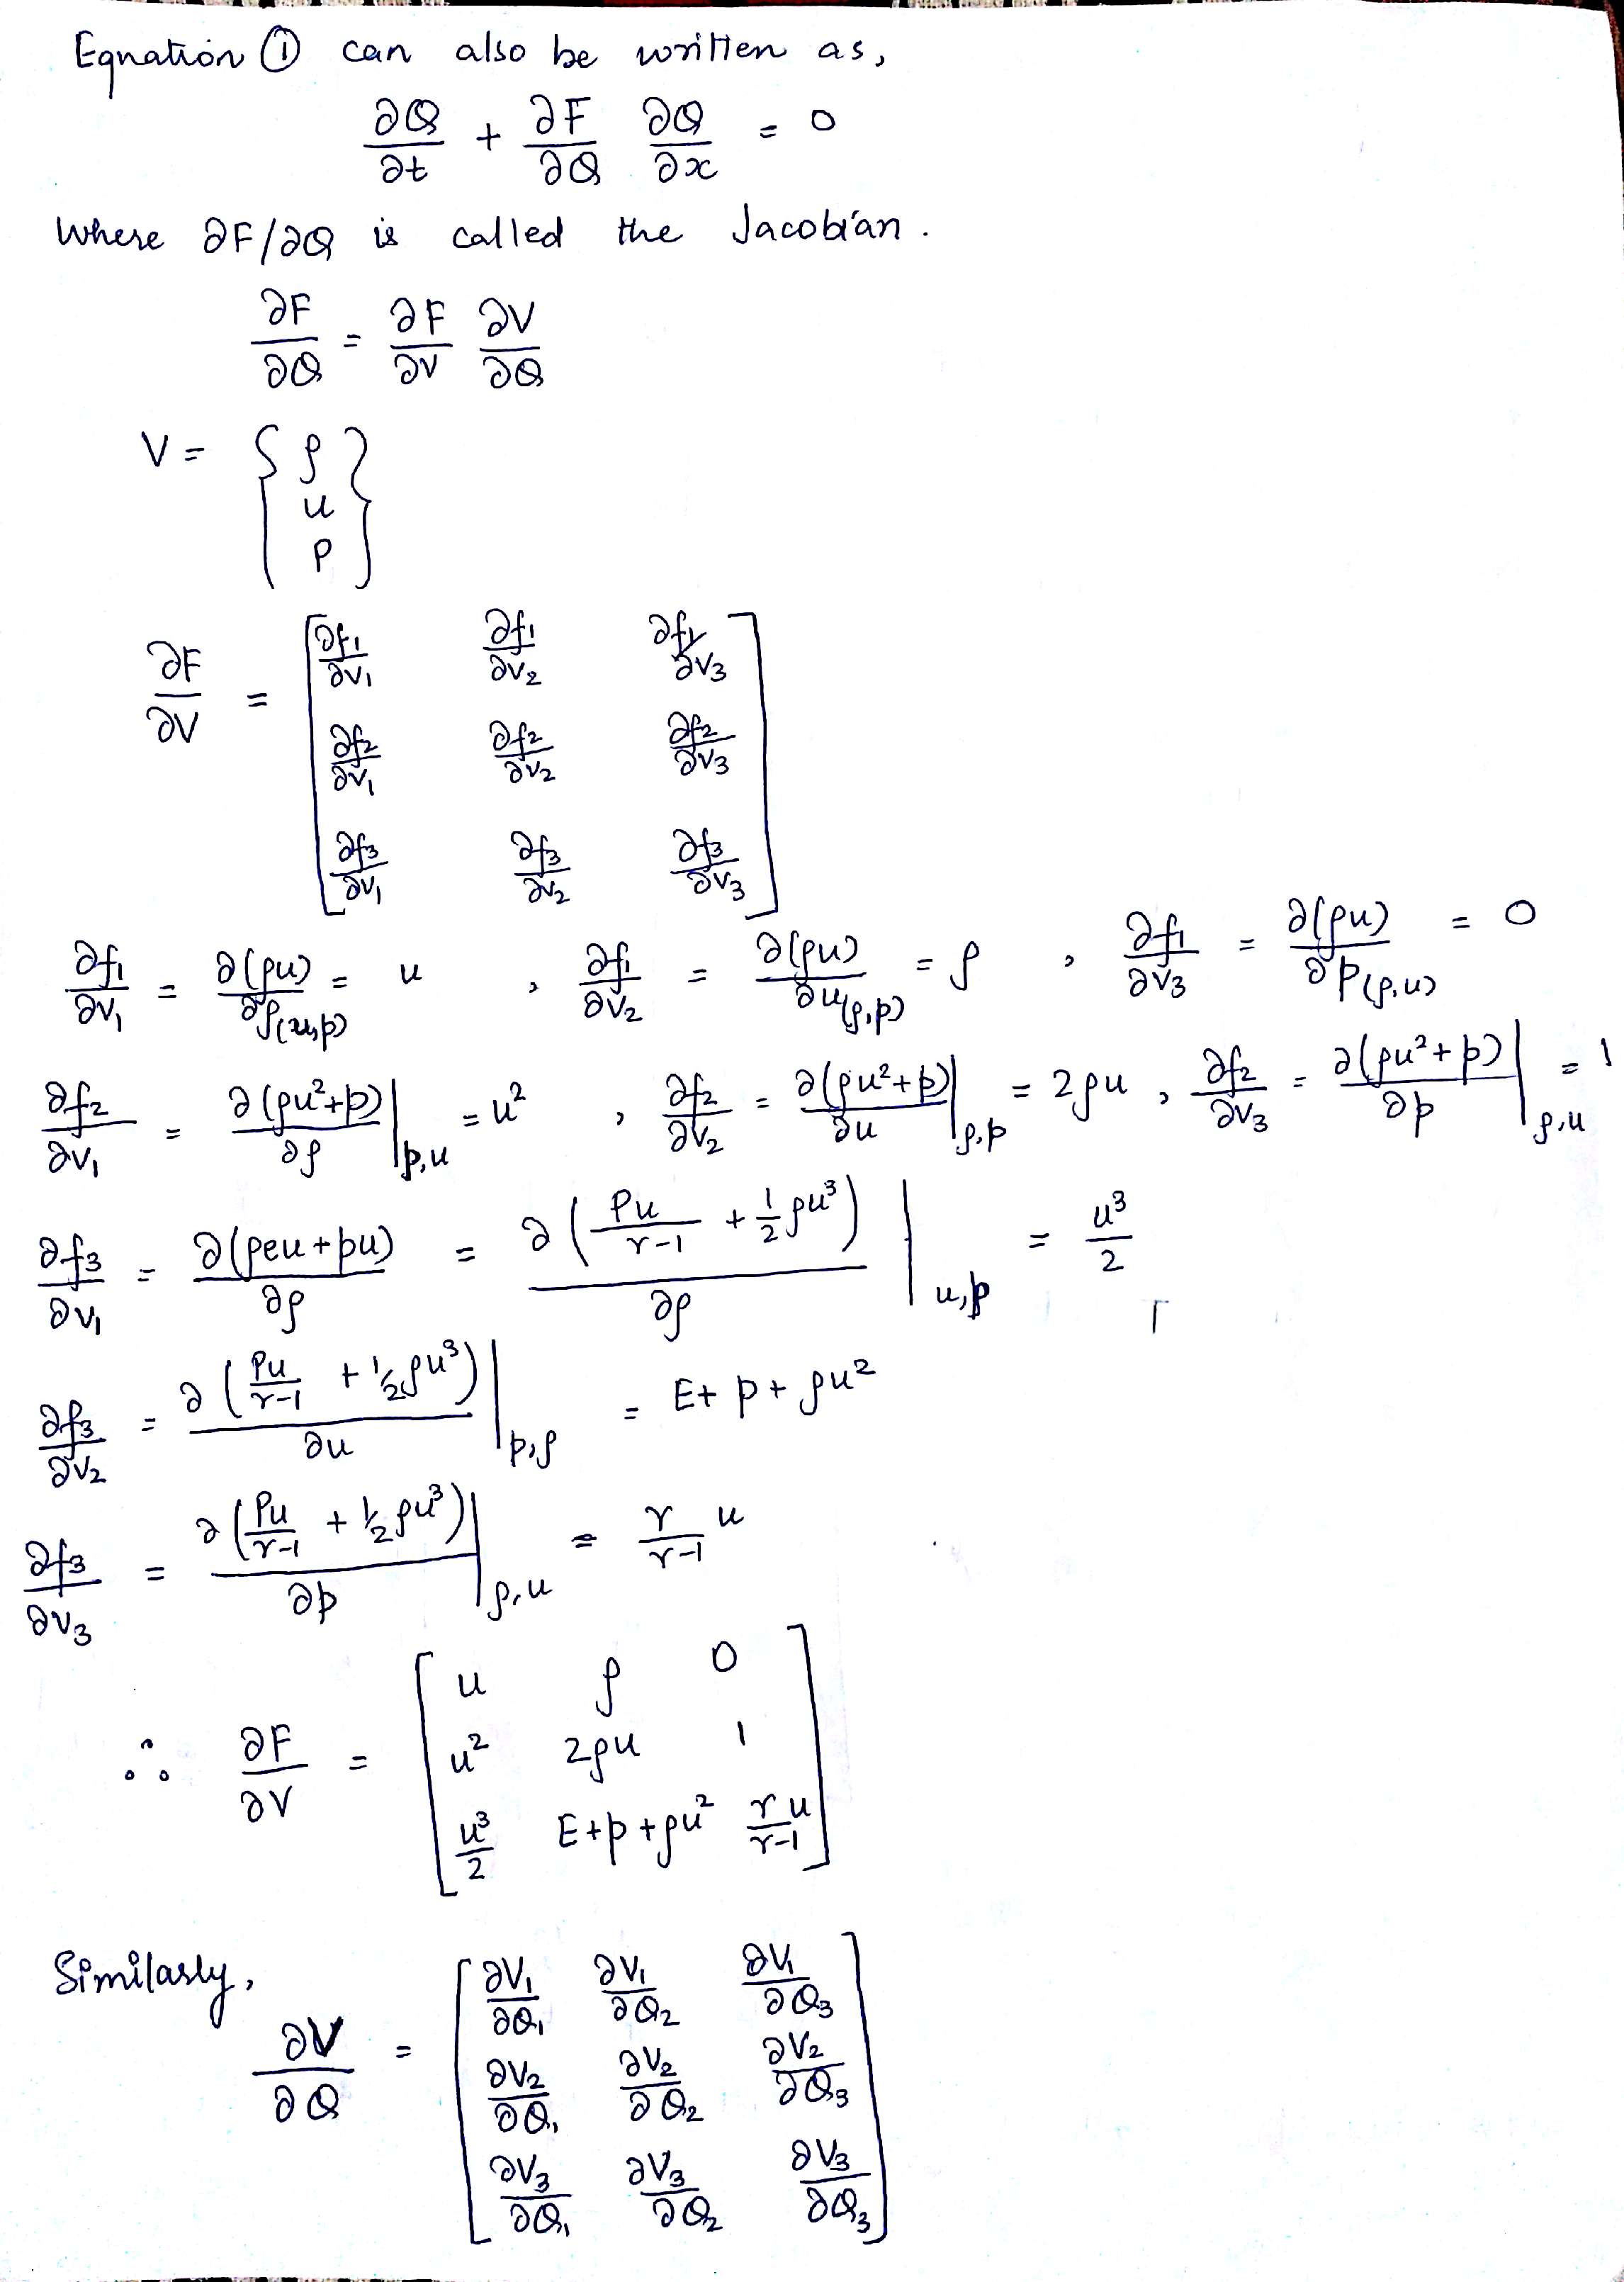 Equation ① can also be written as,
∂Q/∂t + ∂F/∂Q ∂Q/∂x = 0
Where ∂F/∂Q is called the Jacobian.
∂F/∂Q = ∂F/∂V ∂V/∂Q
V = { ρ
u
p }
∂F/∂V = [ ∂f1/∂v1 ∂f1/∂v2 ∂f1/∂v3
∂f2/∂v1 ∂f2/∂v2 ∂f2/∂v3
∂f3/∂v1 ∂f3/∂v2 ∂f3/∂v3 ]
∂f1/∂v1 = ∂(ρu)/∂ρ(u,p) = u , ∂f1/∂v2 = ∂(ρu)/∂u(ρ,p) = ρ , ∂f1/∂v3 = ∂(ρu)/∂p(ρ,u) = 0
∂f2/∂v1 = ∂(ρu²+p)/∂ρ |p,u = u² , ∂f2/∂v2 = ∂(ρu²+p)/∂u |ρ,p = 2ρu , ∂f2/∂v3 = ∂(ρu²+p)/∂p |ρ,u = 1
∂f3/∂v1 = ∂(ρeu+pu)/∂ρ = ∂(Pu/γ-1 + 1/2 ρu³)/∂ρ |u,p = u³/2
∂f3/∂v2 = ∂(Pu/γ-1 + 1/2 ρu³)/∂u |p,ρ = E+p+ρu²
∂f3/∂v3 = ∂(Pu/γ-1 + 1/2 ρu³)/∂p |ρ,u = γ/γ-1 u
∴ ∂F/∂V = [ u ρ 0
u² 2ρu 1
u³/2 E+p+ρu² γu/γ-1 ]
Similarly,
∂V/∂Q = [ ∂V1/∂Q1 ∂V1/∂Q2 ∂V1/∂Q3
∂V2/∂Q1 ∂V2/∂Q2 ∂V2/∂Q3
∂V3/∂Q1 ∂V3/∂Q2 ∂V3/∂Q3 ]